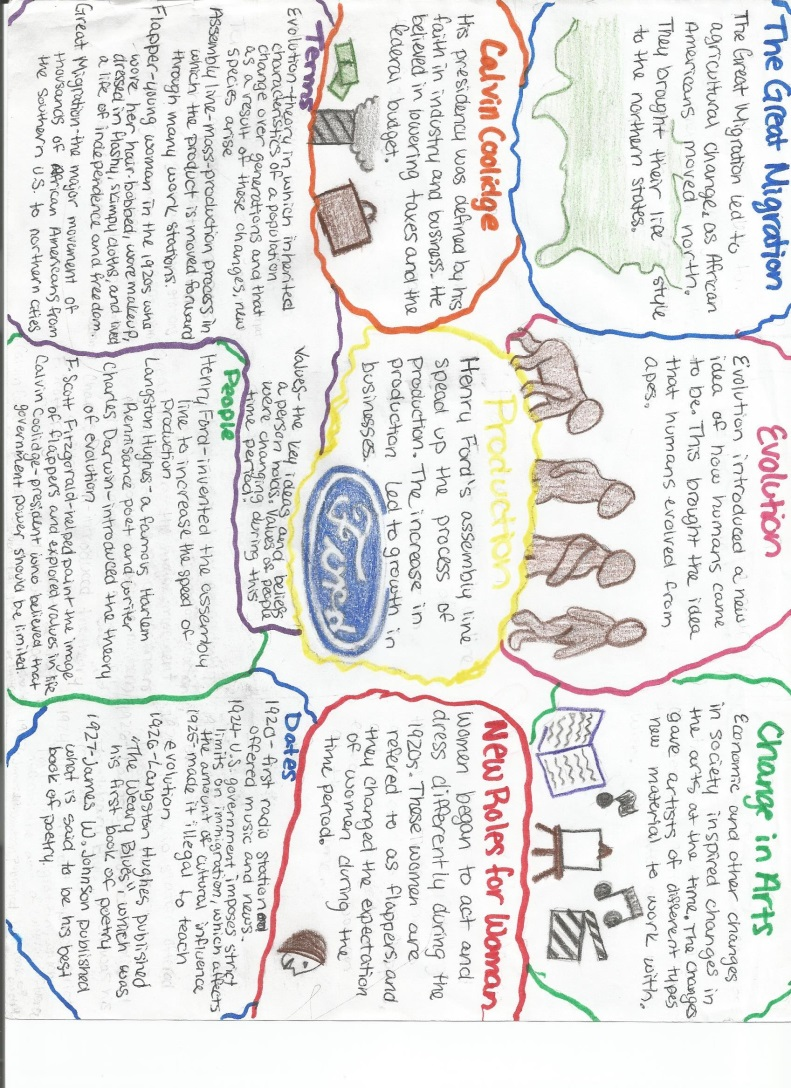 The Great Migration
The Great Migration led to
agricultural change, as African
Americans moved north.
They brought their life style
to the northern states.
Evolution
Evolution introduced a new
idea of how humans came
to be. This brought the idea
that humans evolved from
apes.
Change in Arts
Economic and other changes
in society inspired changes in
the arts at the time. The changes
gave artists of different types
new material to work with.
Calvin Coolidge
His presidency was defined by his
faith in industry and business. He
believed in lowering taxes and the
federal budget.
Production
Henry Ford's assembly line
spead up the process of
production. The increase in
production led to growth in
businesses.
Ford
New Roles for Woman
Women began to act and
dress differently during the
1920s. These women are
refered to as flappers, and
they changed the expectation
of women during the
time period.
Terms
Evolution-theory in which inherited
characteristics of a population
change over generations and that
as a result of these changes, new
species arise
Assembly line-mass-production process in
which the product is moved forward
through many work stations.
Flapper-young woman in the 1920s who
wore her hair bobbed, wore makeup,
dressed in flashy, skimpy cloths, and lived
a life of independence and freedom.
Great Migration-the major movement of
thousands of African Americans from
the Southern U.S. to northern cities
Values-the key ideas and beliefs
a person holds. Values of people
were changing during this
time period.
People
Henry Ford-invented the assembly
line to increase the speed of
production.
Langston Hughes-a famous Harlem
Rennisance poet and writer
Charles Darwin-introduced the theory
of evolution
F. Scott Fitzgerald-helped paint the image
of flappers and explored values in life
Calvin Coolidge-president who believed that
government power should be limited.
Dates
1920-first radio station
offered music and news.
1924-U.S. government imposes strict
limits on immigration, which affects
the amount of cultural influence
1925-made it illegal to teach
evolution
1926-Langston Hughes published
"The Weary Blues", which was
his first book of poetry
1927-James W. Johnson published
what is said to be his best
book of poetry.